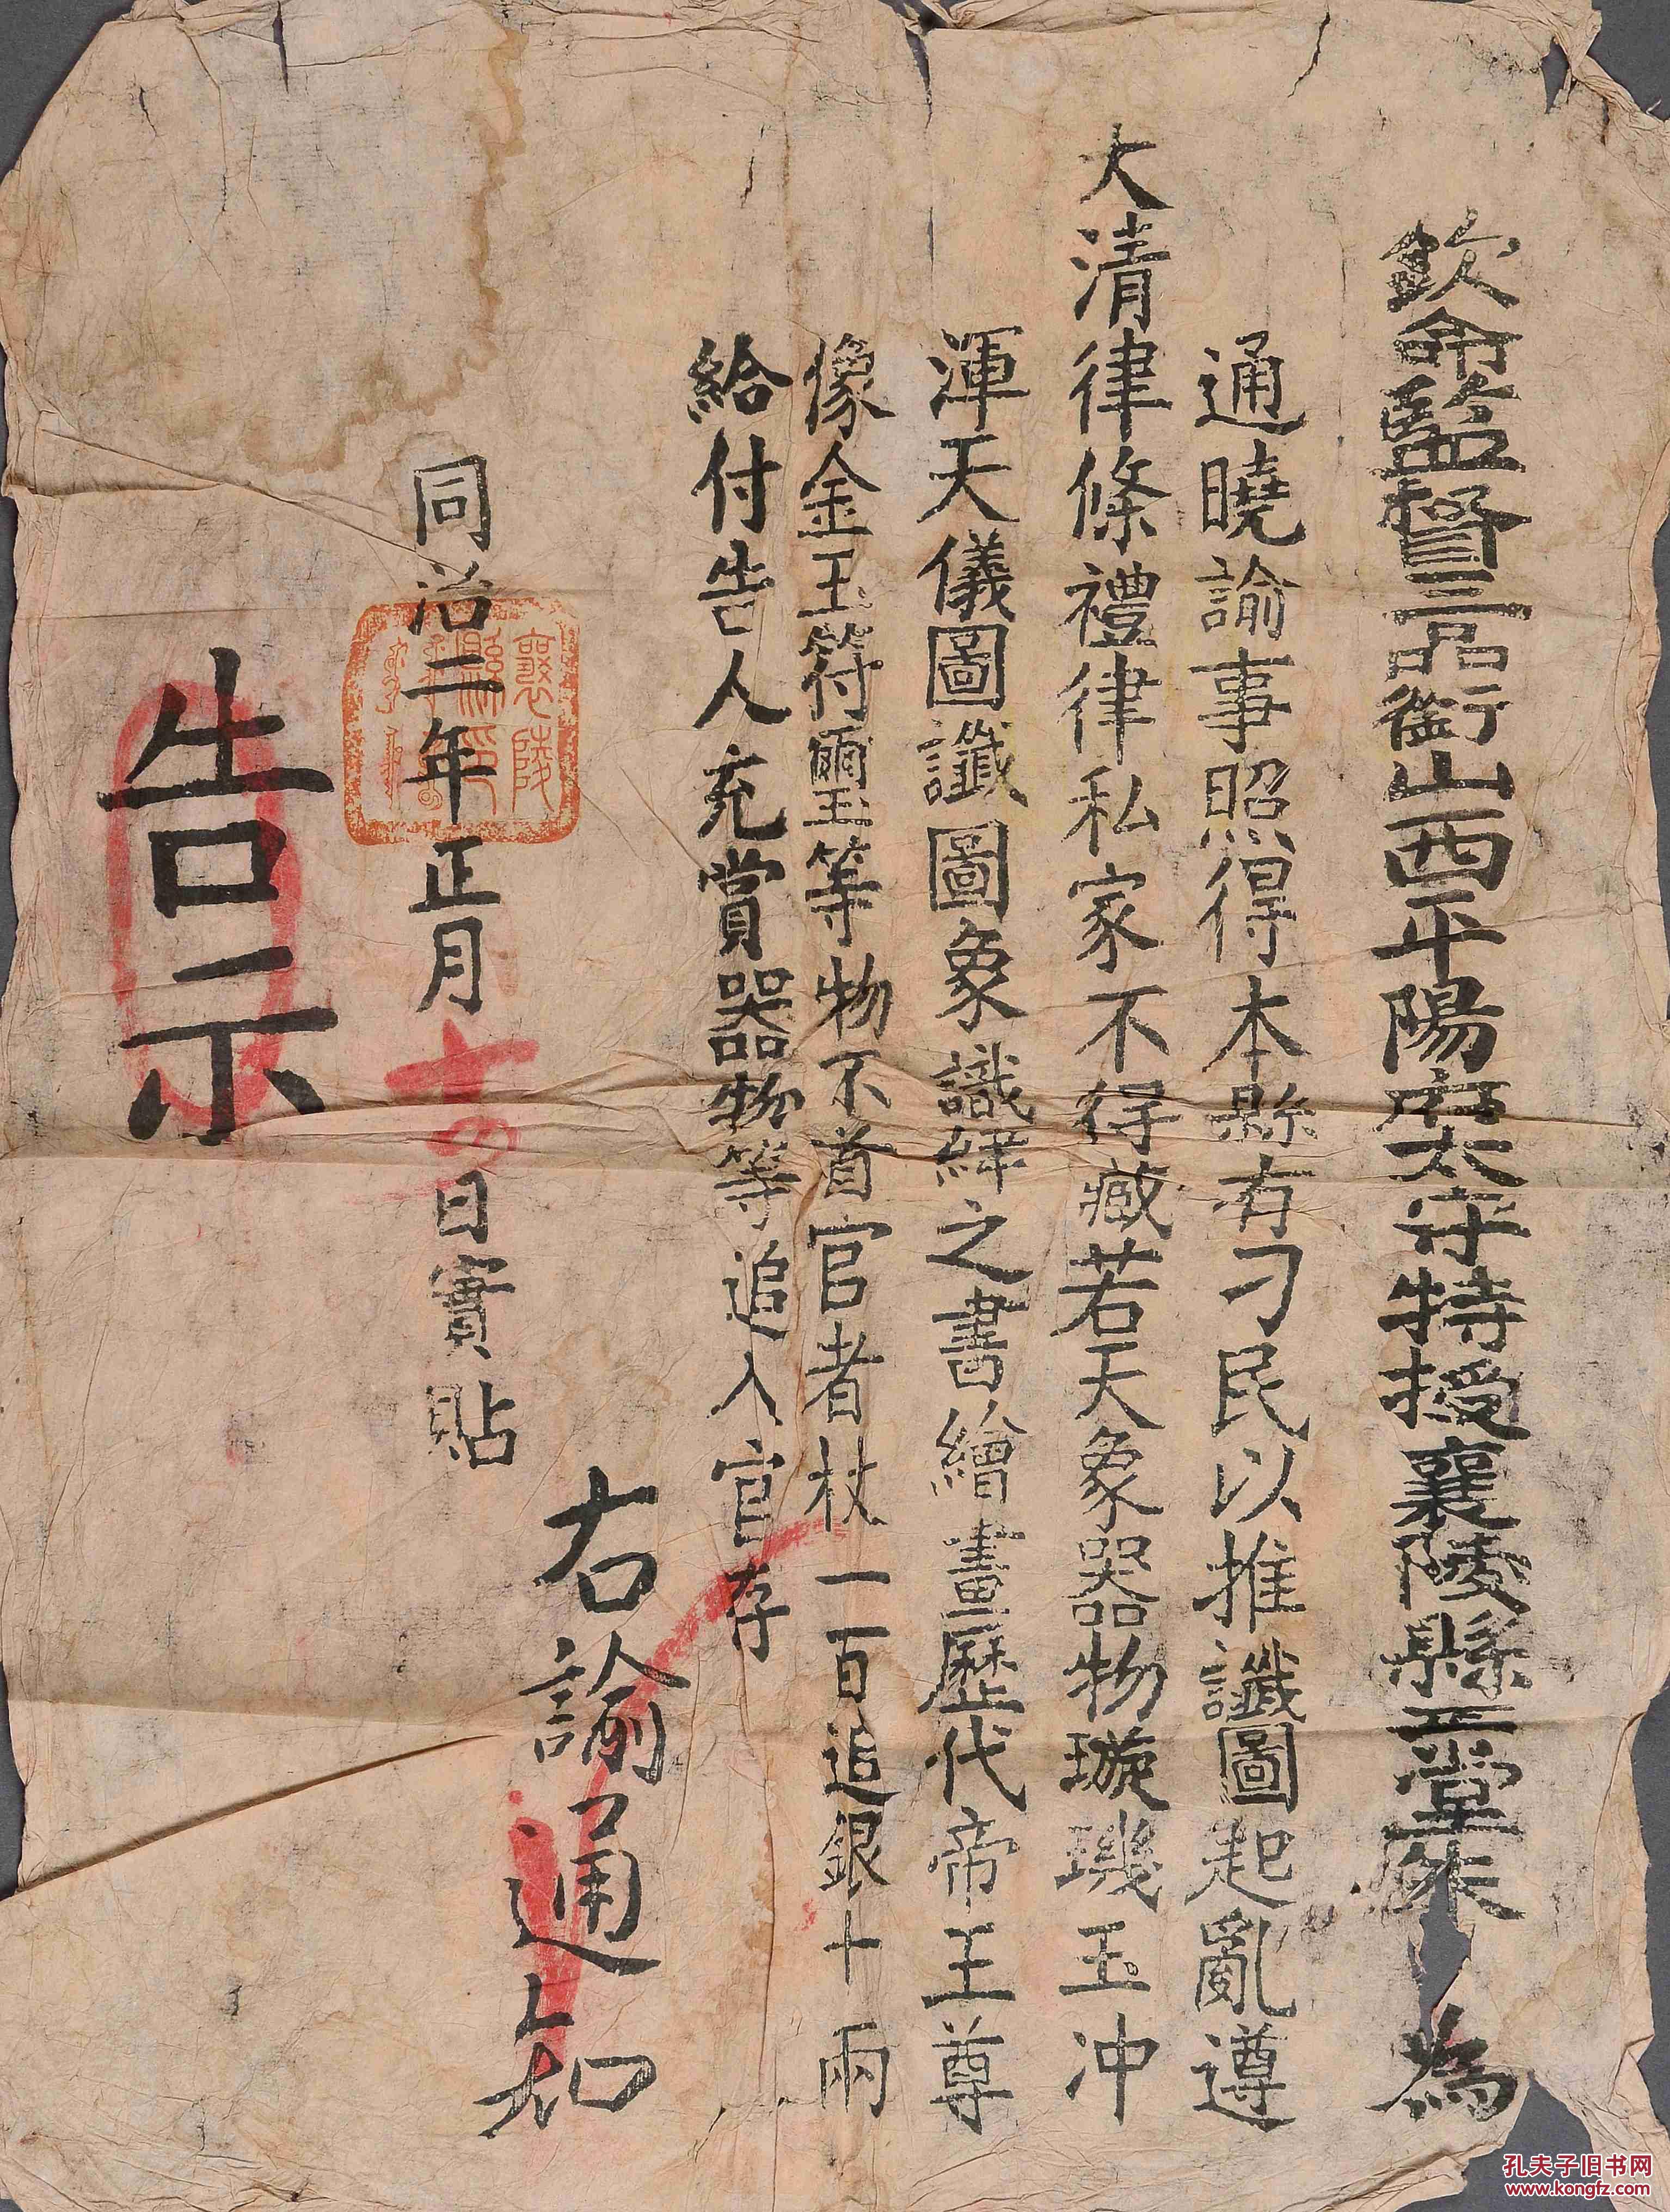 欽命監督三品銜山西平陽府太守特授襄陵縣正堂朱 為
通曉諭事照得本縣有刁民以推讖圖起亂遵
大清律條禮律私家不得藏若天象器物璇璣玉冲
渾天儀圖讖圖象識緯之書繪畫歷代帝王尊
像金玉符璽等物不首官者杖一百追銀十兩
給付告人充賞器物等追入官存
右諭通知
同治二年正月
日實貼
告示
襄陵縣印
孔夫子旧书网
www.kongfz.com